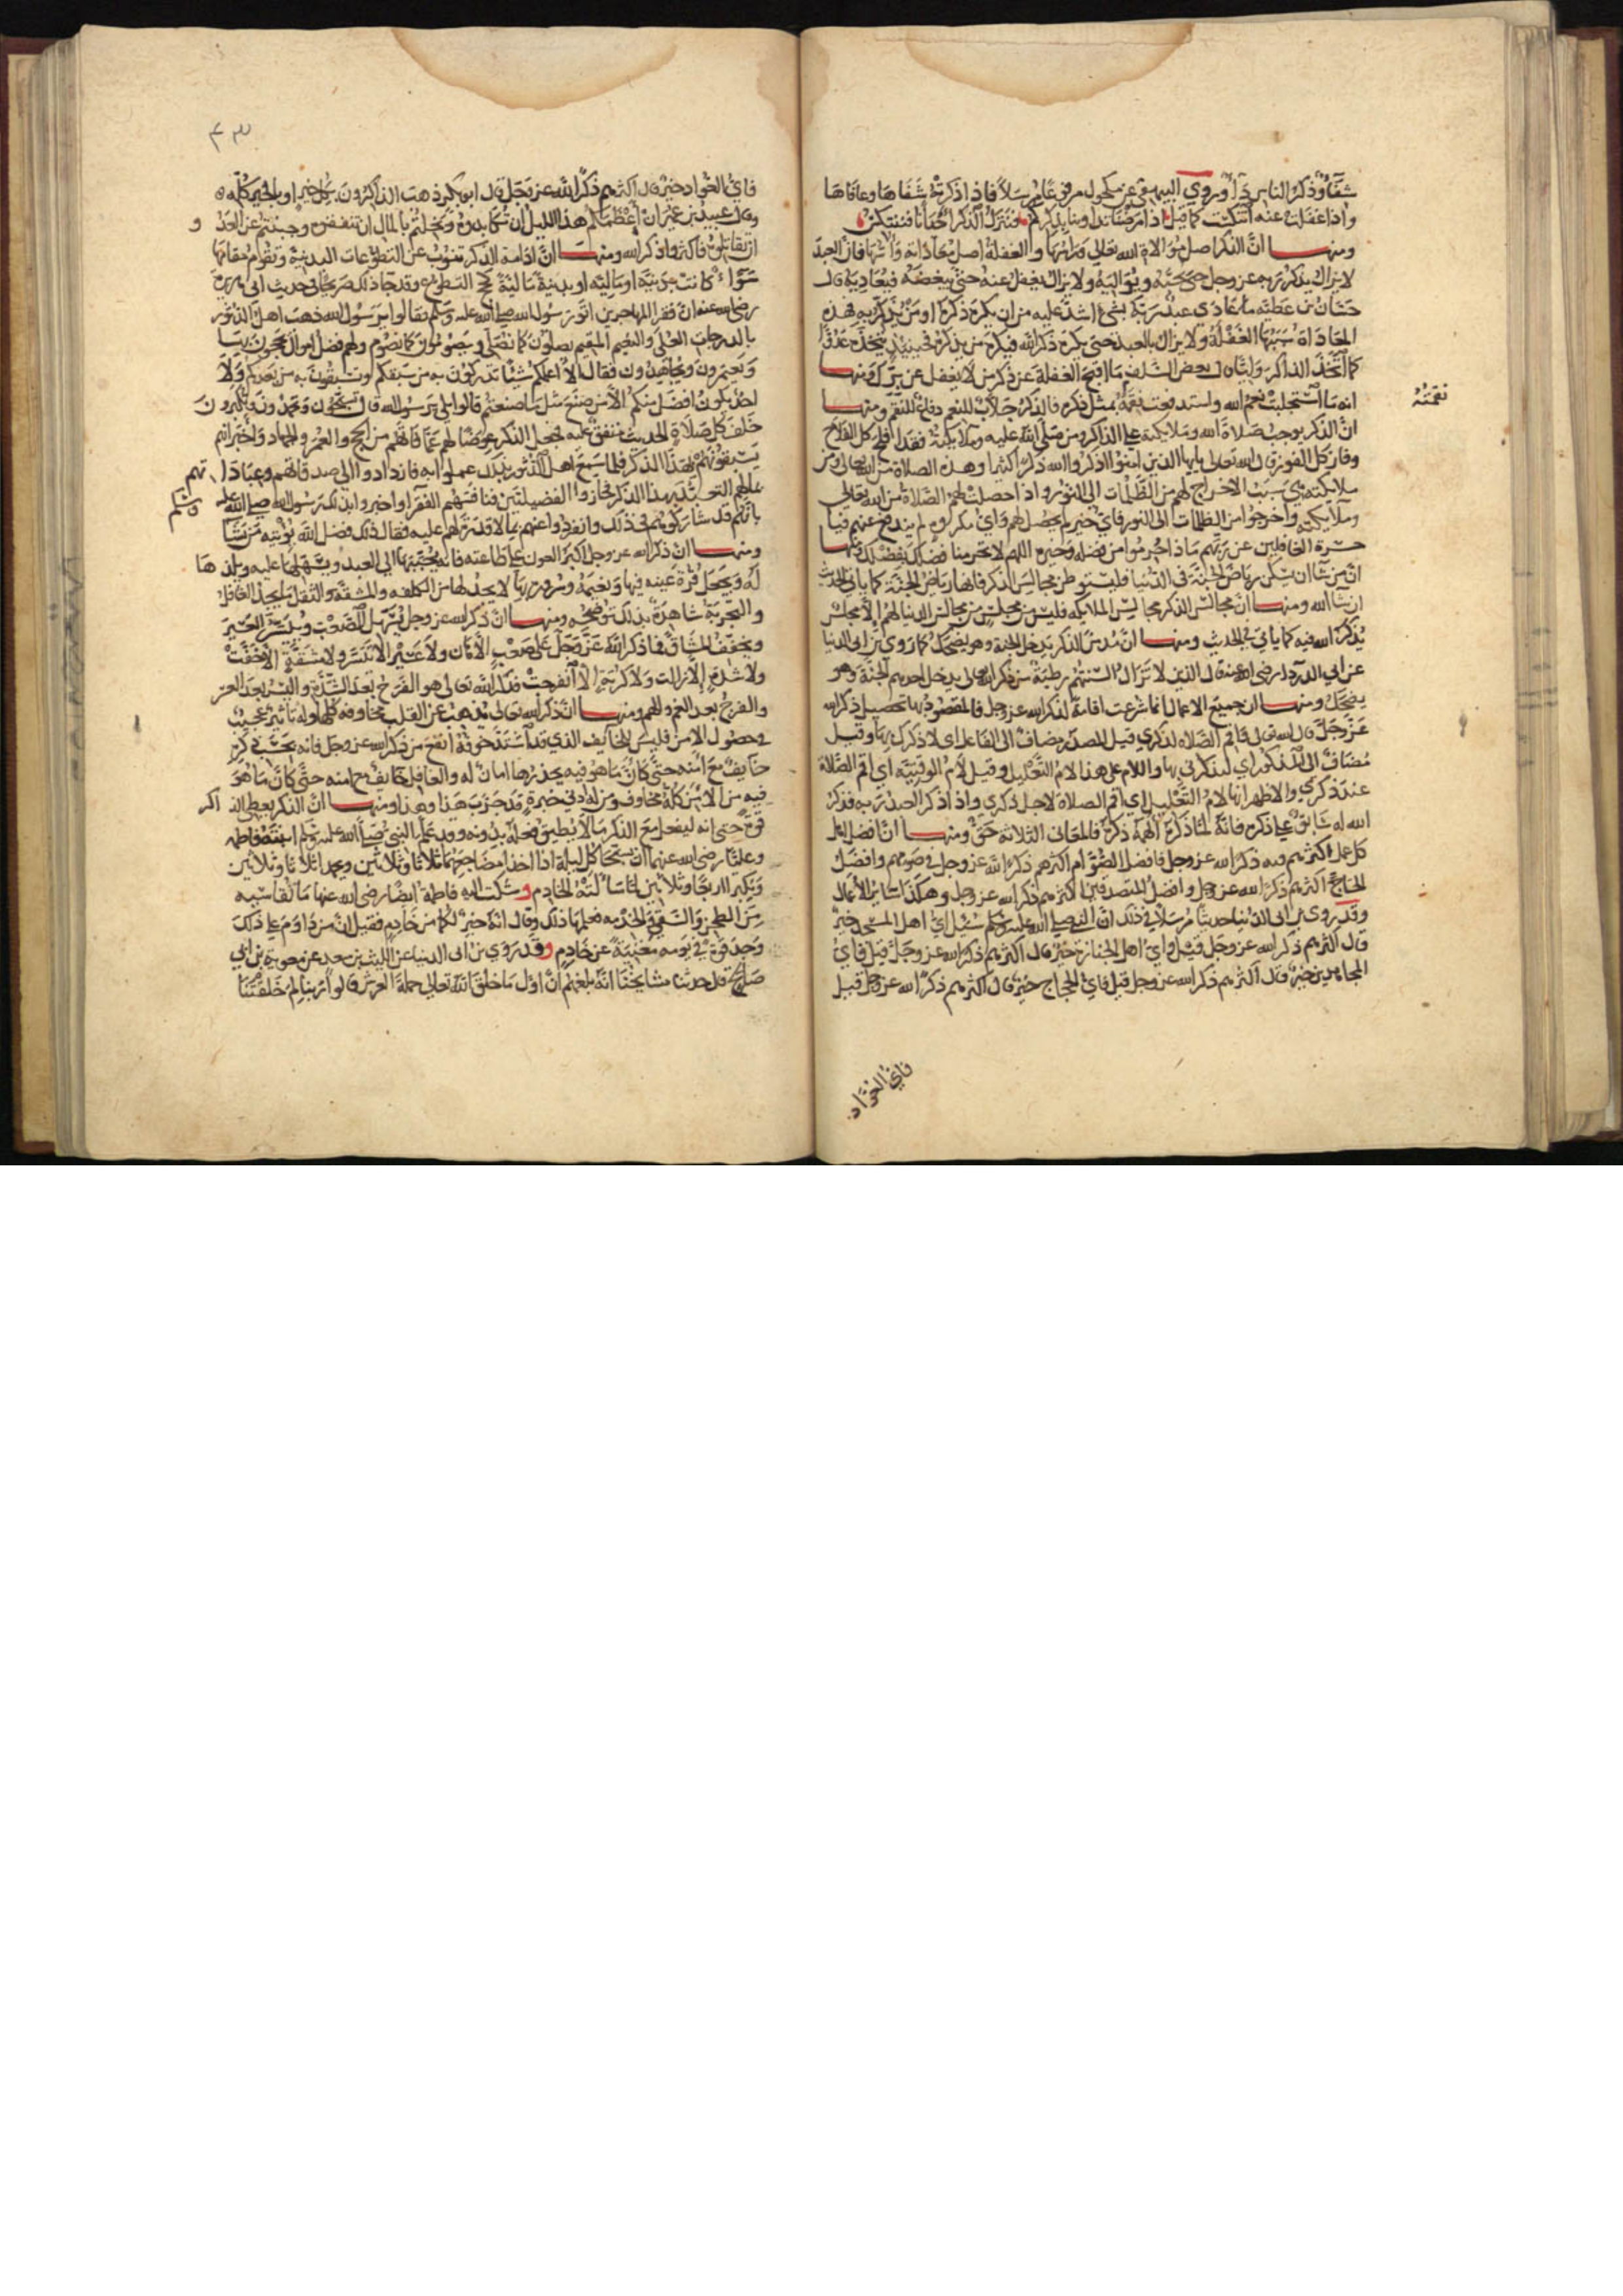 شفاؤ وذكر الناس داؤ وروي البيهقي عن مكحول مرفوعًا مرسلاً فاذا ذكرته شفاها وعافاها
واذا غفلت عنه انتكست كما قيل اذا مرضنا تداوينا بذكركم فنترك الذكر احيانًا فننتكس
ومنها ان الذكر اصل موالاة الله تعالى وراسها والغفلة اصل معاداته واسها فان العبد
لا يزال يذكر ربه عز وجل حتى يحبه ويواليه ولا يزال يغفل عنه حتى يبغضه فيعاديه قال
حسان بن عطية ما عادى عبد ربه بشيء اشد عليه من ان يكره ذكره او من يذكره به فهذه
المعاداة سببها الغفلة ولا يزال بالعبد حتى يكره ذكر الله فيكره من يذكره فحينئذ يتخذه عدوًا
كما اتخذ الذاكر وليًا قال بعض السلف ما اقبح الغفلة عن ذكر من لا يغفل عن برك ومنها
انه ما استجلبت نعم الله واستدفعت نقمه بمثل ذكره فالذكر جلاب للنعم دفاع للنقم ومنها
نقمته
ان الذكر يوجب صلاة الله وملايكته على الذاكر ومن صلى الله عليه وملايكته فقد افلح كل الفلاح
وفاز كل الفوز قال الله تعالى يايها الذين امنوا اذكروا الله ذكرا كثيرا وهذه الصلاة من الله تعالى ومن
ملايكته هي سبب الاخراج لهم من الظلمات الى النور واذا حصلت لهم الصلاة من الله تعالى
وملايكته واخرجوا من الظلمات الى النور فاي خير لم يحصل لهم واي مكروه لم يندفع عنهم فيا
حسرة الغافلين عن ربهم ماذا حرموا من فضله وخيره اللهم لا تحرمنا فضلك بفضلك ومنها
ان من شا ان يسكن رياض الجنة في الدنيا فليستوطن مجالس الذكر فانها رياض الجنة كما ياتي الحديث
ان شا الله ومنها ان مجالس الذكر مجالس الملايكة فليس من مجلس من مجالس الدنيا لهم الا مجلس
يذكر الله فيه كما ياتي في الحديث ومنها ان مدمن الذكر يدخل الجنة وهو يضحك كما روي بن ابي الدنيا
عن ابي الدردا رضي الله عنه قال الذين لا تزال السنتهم رطبة من ذكر الله تعالى يدخل احدهم الجنة وهو
يضحك ومنها ان جميع الاعمال انما شرعت اقامة لذكر الله عز وجل فالمقصود بها تحصيل ذكر الله
عز وجل قال الله تعالى اقم الصلاة لذكري قيل المصدر مضاف الى الفاعل اي لاذكرك بها وقيل
مضاف الى المذكور اي لتذكرني بها واللام على هذا لام التعليل وقيل لام الوقتية اي اقم الصلاة
عند ذكري والاظهر انها لام التعليل اي اقم الصلاة لاجل ذكري واذا ذكر العبد ربه فذكر
الله له سابق على ذكره فانه لما ذكره الهمه ذكره فالمعاني الثلاثة حق ومنها ان افضل اهل
كل عمل اكثرهم فيه ذكرا لله عز وجل فافضل الصوام اكثرهم ذكرا لله عز وجل في صومهم وافضل
الحاج اكثرهم ذكرا لله عز وجل وافضل المتصدقين اكثرهم ذكرا لله عز وجل وهكذا سائر الاعمال
وقد روي بن ابي الدنيا حديثا مرسلاً في ذلك ان النبي صلى الله عليه وسلم سئل اي اهل المسجد خير
قال اكثرهم ذكرا لله عز وجل قيل واي اهل الجنازة خير قال اكثرهم ذكرا لله عز وجل قيل فاي
المجاهدين خير قال اكثرهم ذكرا لله عز وجل قيل فاي الحجاج خير قال اكثرهم ذكرا لله عز وجل قيل
فاي العواد
٤٣
فاي العواد خير قال اكثرهم ذكرًا لله عز وجل قال ابو بكر ذهب الذاكرون بالخير كله
وقال عبيد بن عمير ان اعظمكم هذا الليل ان تكابدوه وبخلتم بالمال ان تنفقوه وجبنتم عن العدو
ان تقاتلوه فاكثروا ذكر الله ومنها ان ادامة الذكر تنوب عن التطوعات البدنية وتقوم مقامها
سواء كانت بدنية او مالية او بدنية مالية كحج التطوع وقد جا ذلك صريحًا في حديث ابي هريرة
رضي الله عنه ان فقرا المهاجرين اتوا رسول الله صلى الله عليه وسلم فقالوا يرسول الله ذهب اهل الدثور
بالدرجات العلى والنعيم المقيم يصلون كما نصلي ويصومون كما نصوم ولهم فضل اموال يحجون بها
ويعتمرون ويجاهدون فقال الا اعلمكم شيئا تدركون به من سبقكم وتسبقون به من بعدكم ولا
احد يكون افضل منكم الا من صنع مثل ما صنعتم قالوا بلى يرسول الله قال تسبحون وتحمدون وتكبرون
خلف كل صلاة الحديث متفق عليه فجعل الذكر عوضًا لهم عما فاتهم من الحج والعمر والجهاد واخبر انهم
يسبقونهم بهذا الذكر فلما سمع اهل الدثور بذلك عملوا به فازدادوا الى صدقاتهم وعباداتهم
بمالهم التعبد بهذا الذكر فحازوا الفضيلتين فنافسهم الفقرا واخبروا بذلك رسول الله صلى الله عليه وسلم
بانهم قد شاركوهم في ذلك وانفردوا عنهم بما لا قدرة لهم عليه فقال ذلك فضل الله يؤتيه من يشا
ومنها ان ذكر الله عز وجل اكبر العون على طاعته فانه يحببها الى العبد ويسهلها عليه ويلذذها
له ويجعل قرة عينه فيها ونعيمه وسروره بها لا يجد لها من الكلفه والمشقة والثقل ما يجد الغافل
والتجربة شاهدة بذلك توضحه ومنها ان ذكر الله عز وجل يسهل الصعب وييسر العسير
ويخفف المشاق فما ذكر الله عز وجل على صعب الا هان ولا عسير الا تيسر ولا مشقة الا خفت
ولا شدة الا زالت ولا كربة الا انفرجت فذكر الله تعالى هو الفرج بعد الشدة واليسر بعد العسر
والفرج بعد الغم والهم ومنها ان ذكر الله تعالى يذهب عن القلب مخاوفه كلها وله تاثير عجيب
في حصول الامن فليس للخايف الذي قد اشتد خوفه انفع من ذكر الله عز وجل فانه بحسب ذكره
حتى كان ما هو فيه يحذرها امان له والغافل خايف مع امنه حتى كان ما هو
فيه من الامن كله مخاوف ومن له ادنى خبرة قد جرب هذا وهذا ومنها ان الذكر يعطي الذاكر
قوة حتى انه ليفعل مع الذكر ما لا يطيق فعله بدونه وقد علم النبي صلى الله عليه وسلم ابنته فاطمة
وعليًا رضي الله عنهما ان يسبحا كل ليلة اذا اخذا مضاجعهما ثلاثًا وثلاثين ويحمدا ثلاثا وثلاثين
ويكبرا اربعًا وثلاثين لما سالته الخادم وشكت اليه فاطمة ايضا رضي الله عنها ما تقاسيه
من الطحن والسعي والخدمه فعلمها ذلك وقال انه خير لكما من خادم فقيل ان من داوم على ذلك
وجد قوة في يومه مغنية عن خادم وقد روي بن ابي الدنيا عن الليث بن سعد عن معوية بن ابي
صالح قال حدثنا مشايخنا انه بلغهم ان اول ما خلق الله تعالى حملة العرش قالوا ربنا لم خلقتنا